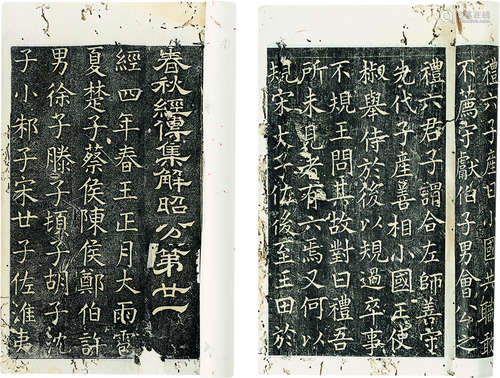 春秋經傳集解昭公第廿一
經四年春王正月大雨雹
夏楚子蔡侯陳侯鄭伯許
男徐子滕子頓子胡子沈
子小邾子宋世子佐淮夷
禮六子產曰小國共職敢
不薦守獻伯子男會公之
禮六君子謂合左師善守
先代子產善相小國王使
椒舉侍於後以規過卒事
不規王問其故對曰禮吾
所未見者有六焉又何以
規宋大子佐後至王田於